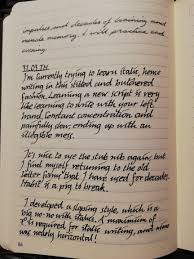 impulses and decades of training and
muscle memory. I will practice each
evening.
31.03.TH.
I'm currently trying to learn italic, hence
writing in this stilted and butchered
fashion. Learning a new script is very
like learning to drive with your left
hand. Constant concentration, and
painfully slow, ending up with an
illegible mess.
It's nice to use the stub nib again, but I
find myself returning to the old
letter forms that I have used for decades.
Habit is a pig to break.
I developed a sloping style, which is a
big no-no with italics. A maximum of
is required for italic writing, and mine
was nearly horizontal!
86